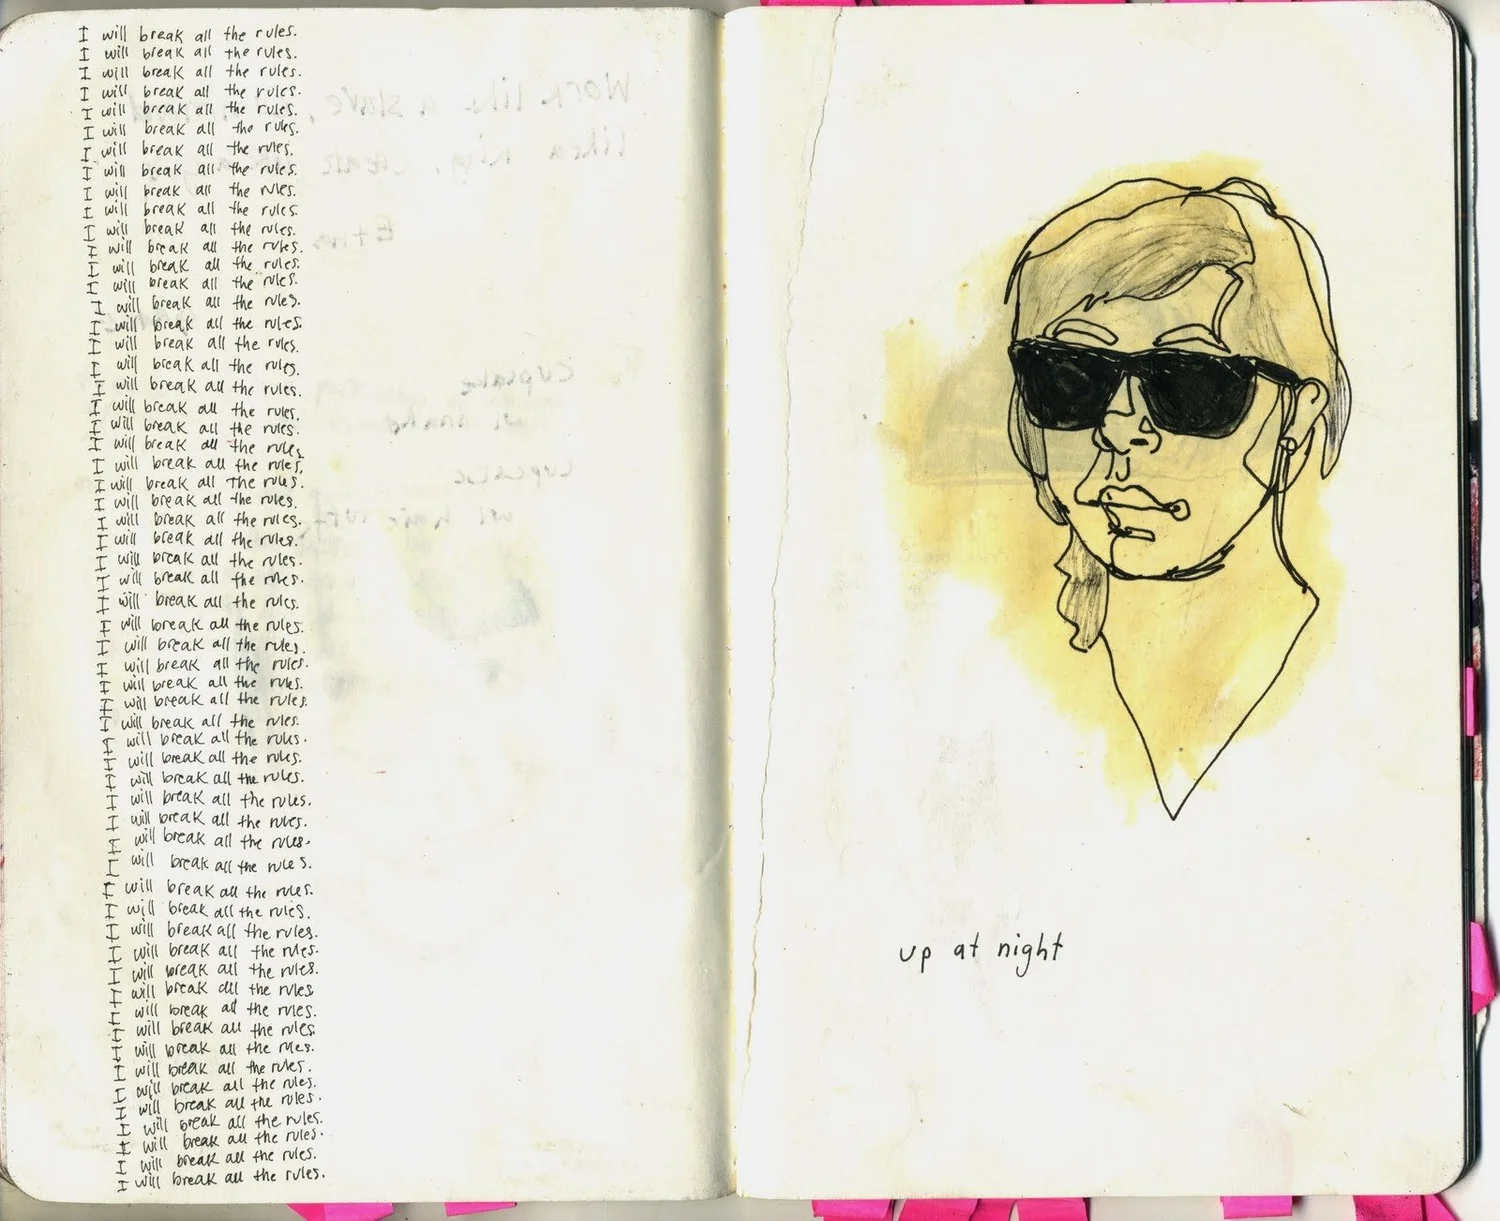 I will break all the rules.
I will break all the rules.
I will break all the rules.
I will break all the rules.
I will break all the rules.
I will break all the rules.
I will break all the rules.
I will break all the rules.
I will break all the rules.
I will break all the rules.
I will break all the rules.
I will break all the rules.
I will break all the rules.
I will break all the rules.
I will break all the rules.
I will break all the rules.
I will break all the rules.
I will break all the rules.
I will break all the rules.
I will break all the rules.
I will break all the rules.
I will break all the rules.
I will break all the rules.
I will break all the rules.
I will break all the rules.
I will break all the rules.
I will break all the rules.
I will break all the rules.
I will break all the rules.
I will break all the rules.
I will break all the rules.
I will break all the rules.
I will break all the rules.
I will break all the rules.
I will break all the rules.
I will break all the rules.
I will break all the rules.
I will break all the rules.
I will break all the rules.
I will break all the rules.
I will break all the rules.
I will break all the rules.
I will break all the rules.
I will break all the rules.
I will break all the rules.
I will break all the rules.
I will break all the rules.
I will break all the rules.
I will break all the rules
I will break all the rules.
I will break all the rules.
I will break all the rules.
I will break all the rules.
I will break all the rules.
I will break all the rules.
I will break all the rules.
I will break all the rules.
I will break all the rules.
I will break all the rules.
up at night